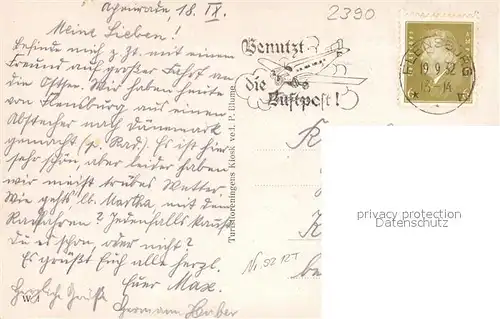 Apenrade, 18. IX.
Meine Lieben!
Befinde mich z. Zt. mit einem
Freund auf großer Fahrt an
die Ostsee. Wir haben heute
von Flensburg aus einen
Abstecher nach Dänemark
gemacht (p. Rad). Es ist hier
sehr schön, aber leider haben
wir meist trübes Wetter.
Wie gehts lb. Martha mit dem
Radfahren? Jedenfalls kannst
Du es schon, oder nicht?
Es grüßt Euch alle herzl.
Euer Max.
Herzliche Grüße
Hermann
W.
Turistforeningens Kiosk ved J. P. Blume
2390
Benutzt
die
Luftpost!
FLENSBURG
19.9.32
13-14
K
K
be
Nr. 92 127
privacy protection
Datenschutz
www.oldthing.de